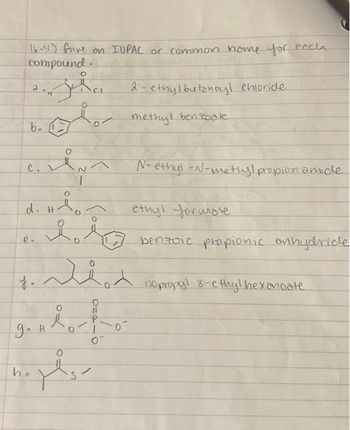 16.4) Give an IUPAC or common name for each
compound.
a. 2-ethylbutanoyl chloride
O
Cl
b. methyl benzoate
O
O
c. N-ethyl-N-methyl propionamide
O
N
d. ethyl formate
O
H O
e. benzoic propionic anhydride
O O
O
f. isopropyl 3-ethylhexanoate
O
O
g.
O O
H O-P-O⁻
O⁻
h.
O
S